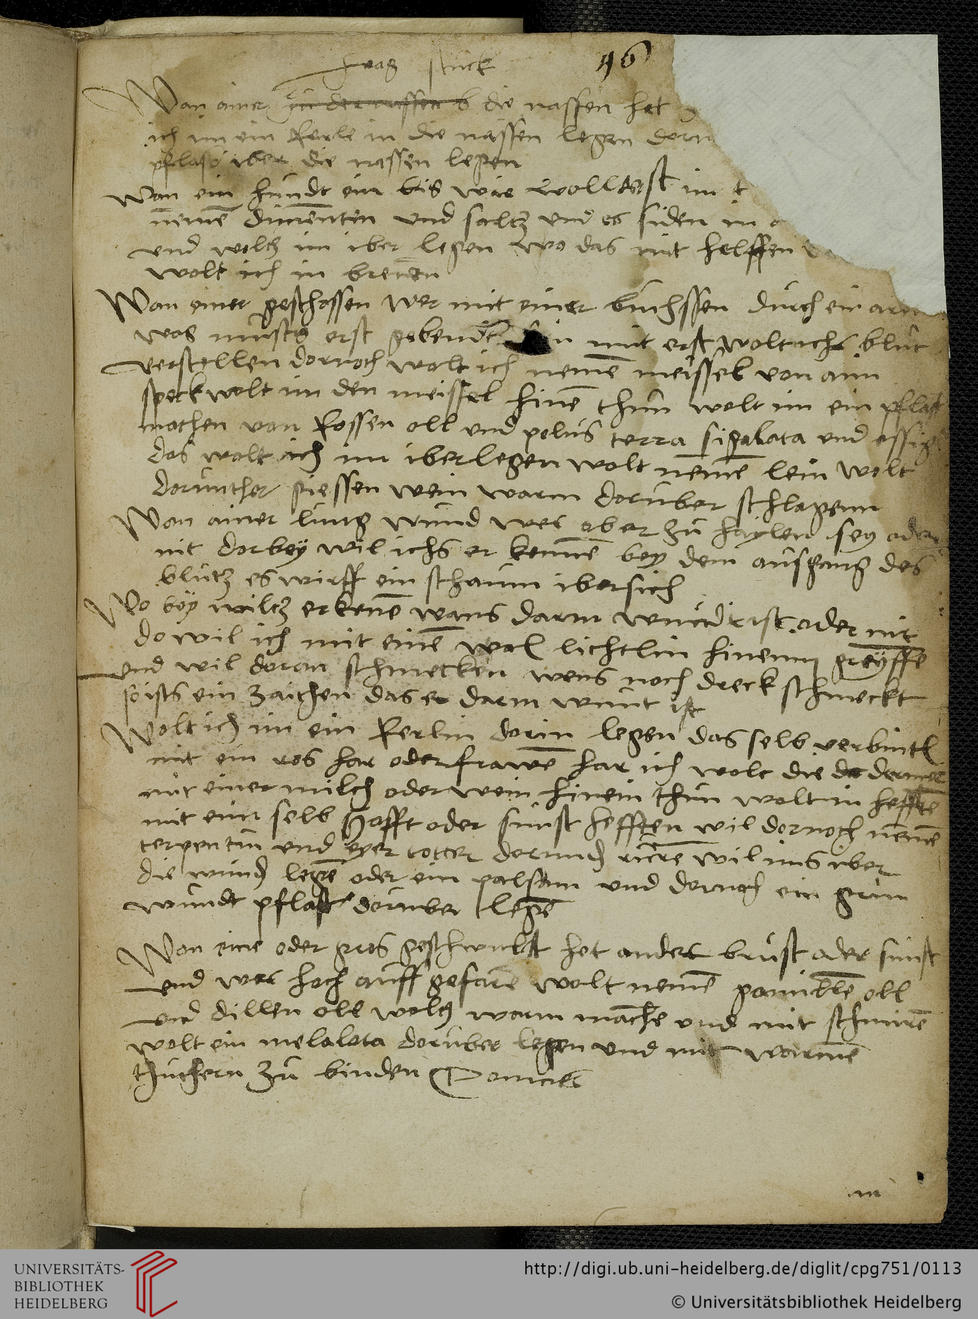 frag stuck
96
Wan ainer in der nassen die nassen het
ich im ein kerle in die nassen legen dorn
pflast uber die nassen legen
Wan ein hundt ein bis wie woltest im
nemen und saltz und es siden in
und woltz im iber legen wo das nit helffen
wolt ich in brenen
Wan einer geschossen wer mit einer buchssen durch ein arm
was must erst mit erst wolt ichs blut
verstellen dornoch wolt ich nemen meissel von aim
speck wolt im den meissel hinen thun wolt im ein pflast
machen von Rossen oll und polus terra sigalata und essig
das wolt ich im iberlegen wolt nemen lein wolt
dorunther giessen wein warm doruber schlagenn
Wan ainer lung wund wer ob er zu haylen sey oder
nit dorbey wil ichs er kennen bey dem ausgang des
blutz es wirff ein schaum ibersich
Wo bey wiltz erkenen wans darm wundt ist oder nit
do wil ich mit einem wax lichtlin hinenn greyffe
und wil doran schmecken wens noch dreck schmeckt
so ists ein zaichen das er darm wunt ist
Wolt ich im ein kerlin dorin legen das selb verbintt
mit ein ros har oder frawen har ich wolt die
mit einer milch oder wein hinein thun wolt in hefften
mit eim selb hefft oder sunst hefften wil dornoch nemen
terpentin und eyer totter dorund wil ims uber
die wund legen oder ein palsam und dornoch ein grun
wundt pflast doruber legen
Wan eine oder gros geschwulst het an der brust oder sunst
und wer hoch auff gefaren wolt nemen gamillen oll
und dillen oll woltz warm mache und mit schmiren
wolt ein melalota doruber legen und mit warmen
thuchern zu binden
UNIVERSITÄTS-
BIBLIOTHEK
HEIDELBERG
http://digi.ub.uni-heidelberg.de/diglit/cpg751/0113
© Universitätsbibliothek Heidelberg